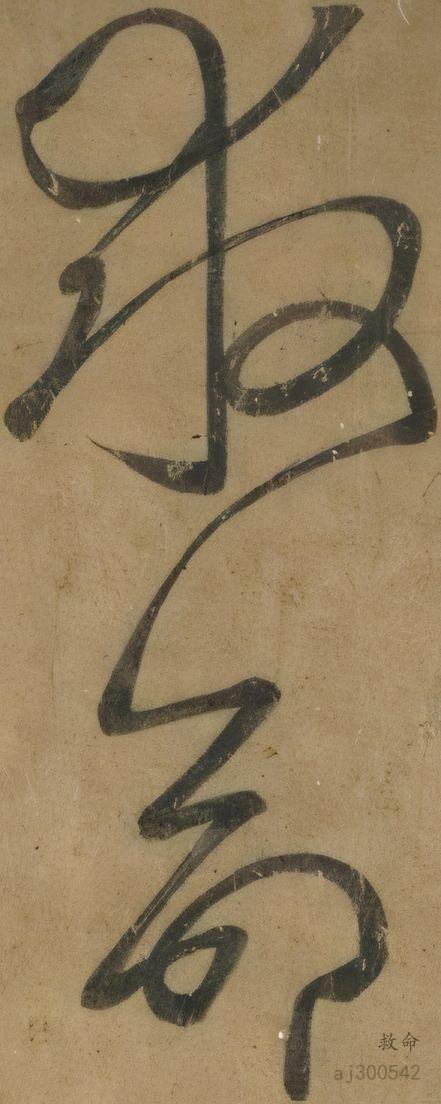 救命
救命
aj300542